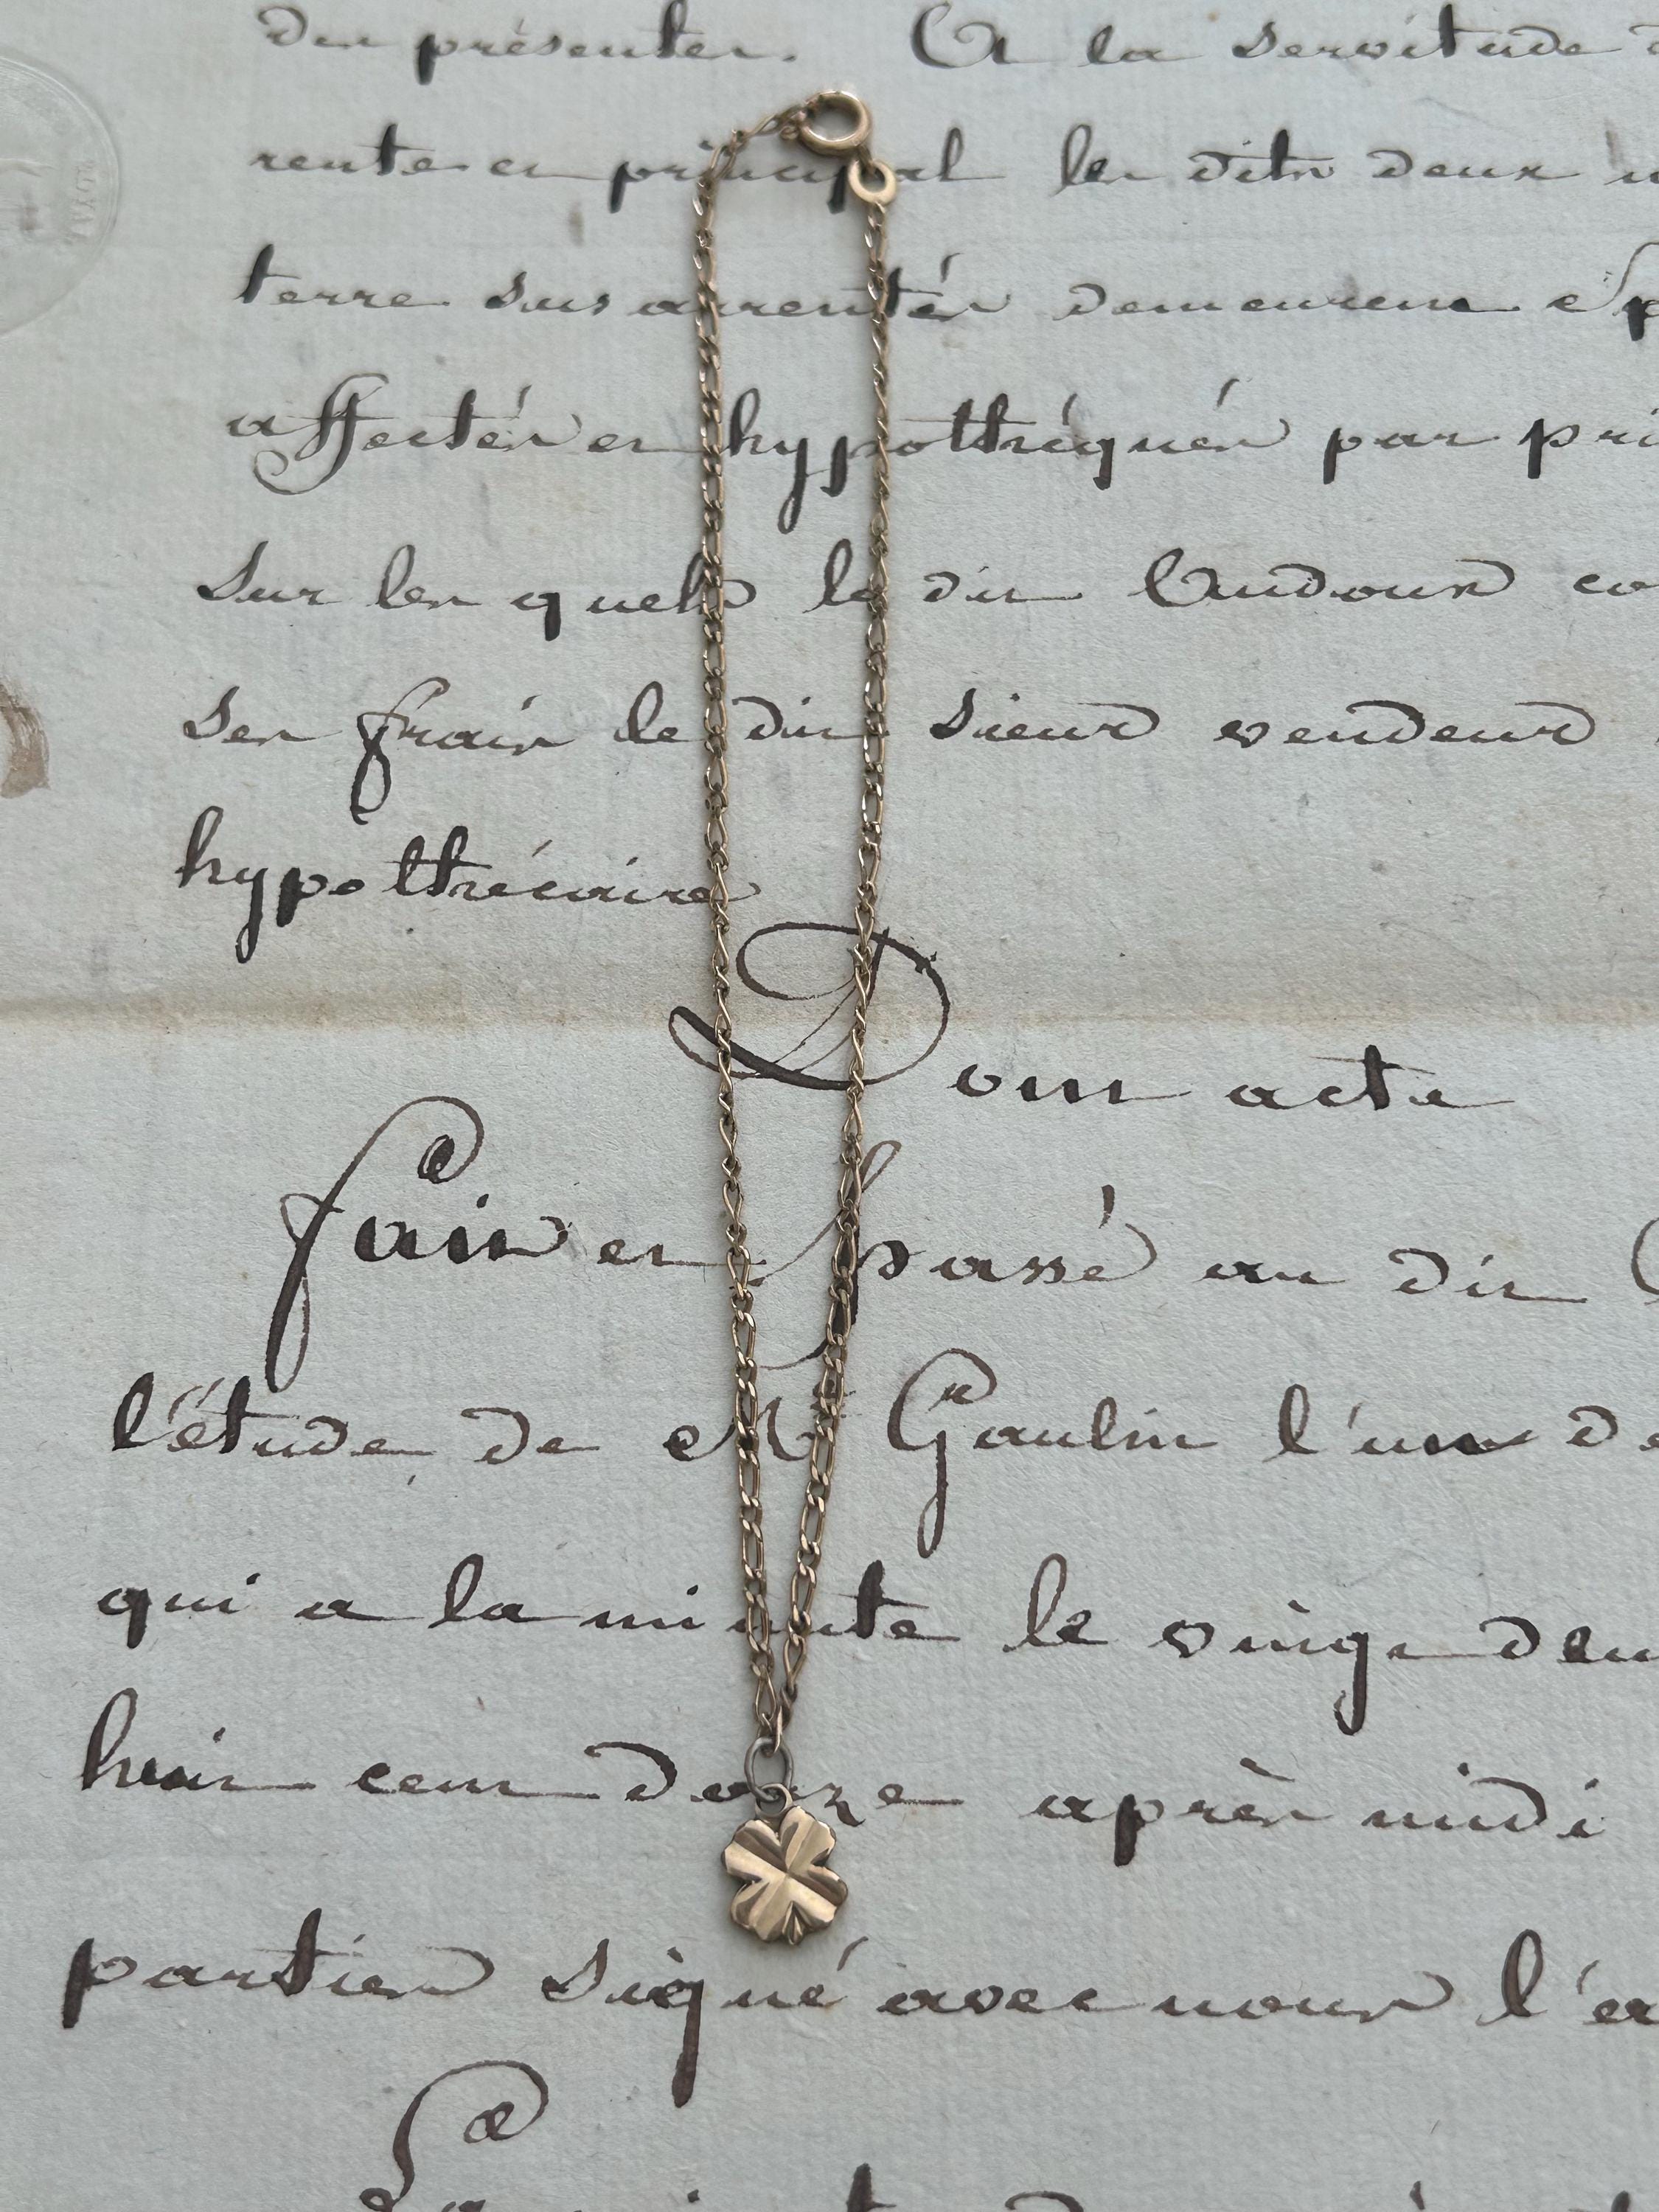 des présentes. A la servitude d
rente en principal les dits deux
terre sus arrentés demeurent
affectés et hypothéqués par pri
sur les quels le dit Audoux co
ses frais le dit sieur vendeur
hypothécaire
Dont acte
fait et passé au dit
l'étude de Me Gaulin l'un de
qui a la minute le vingt deu
huit cent douze après midi
parties signé avec nous l'en